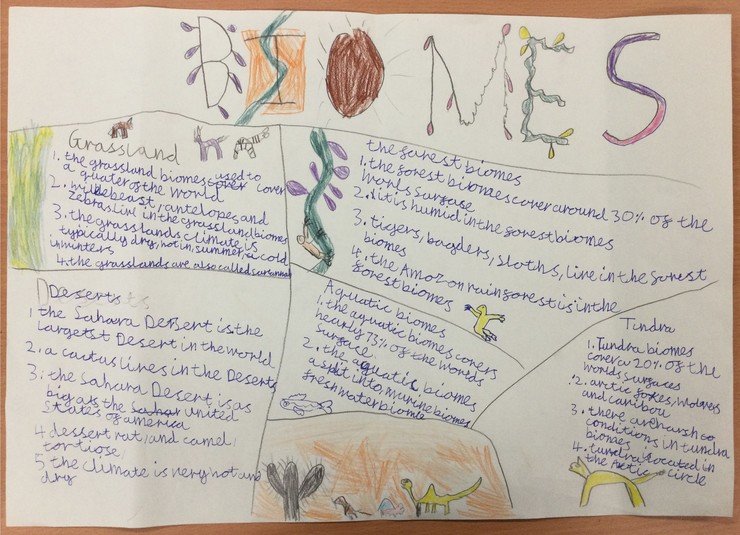 BIOMES
Grassland
1. the grassland biomes cover used to cover
a quater of the world
2. wildebeast, antelopes, and
Zebras live in the grassland biomes
3. the grasslands climate is
typically dry, hot in, summer, cold
in winters
4. the grasslands are also called
the forest biomes
1. the forest biomes cover around 30% of the
worls surgase
2. it is humid in the forest biomes
3. tigers, bagders, sloths, live in the forest
biomes
4. the Amozon rainforest is in the
forest biomes
Deserts
1 the Sahara Desert is the
largetst Desert in the world
2. a cactus lives in the Deserts
3. the Sahara Desert is as
big as the Sahar united
States of america
4 dessert rat, and camel,
tortiose,
5 the climate is very hot and
dry
Aquatic biomes
1. the aquatic biomes covers
nearly 75% of the worlds
surgase
2. the aquatic biomes
a split into, murine biomes,
freshwater biome
Tundra
1. Tundra biomes
cover a 20% of the
worlds surfaces
2. arctic foxes, wolvers
and caribou
3. there are harsh co
conditions in tundra
biomes
4. tundra located in
the Arctic circle